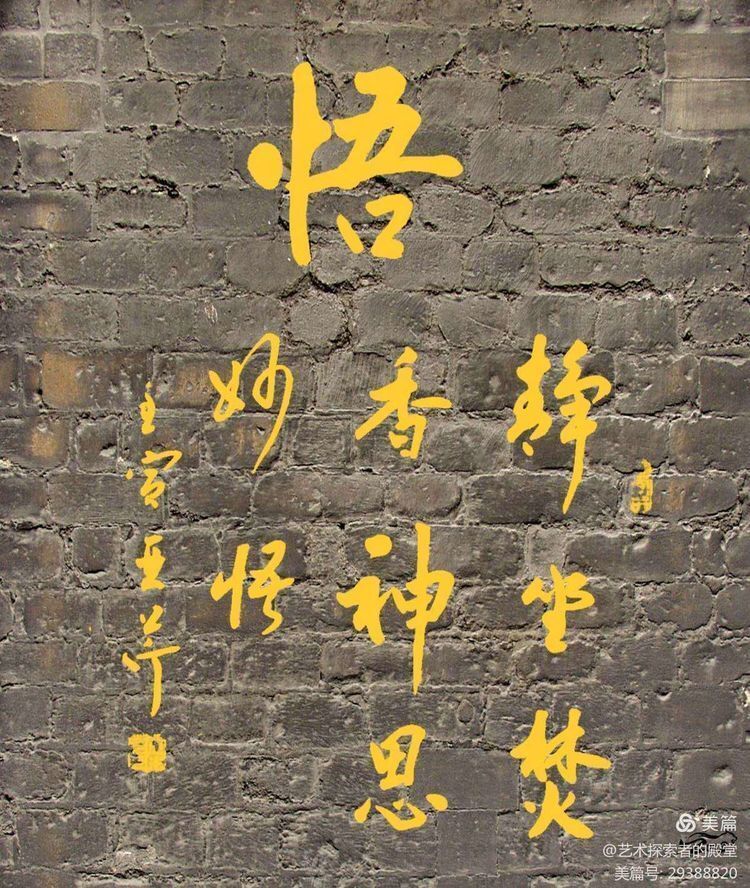 悟
静坐焚
香神思
妙悟
美篇
@艺术探索者的殿堂
美篇号: 29388820